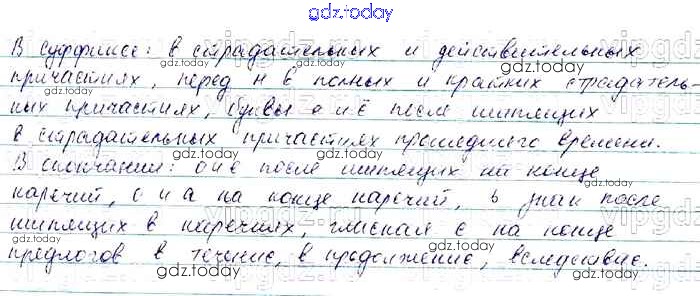 gdz.today
В суффиксе: в страдательных и действительных
причастиях, перед н в полных и кратких страдатель-
ных причастиях, буквы е и ё после шипящих
в страдательных причастиях прошедшего времени.
В окончании: о и е после шипящих на конце
наречий, о и а на конце наречий, ь знак после
шипящих в наречиях, гласная е на конце
предлогов в течение, в продолжение, вследствие.
gdz.today